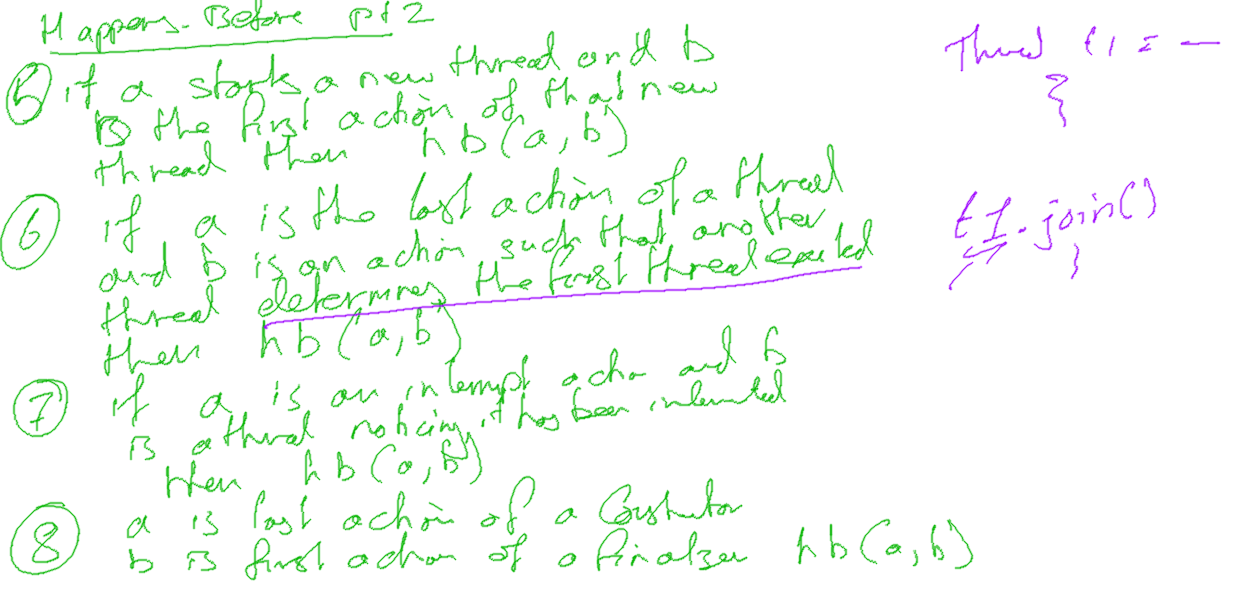 Happens-Before pt 2
⑤ if a starts a new thread and b
is the first action of that new
thread then hb(a,b)
⑥ if a is the last action of a thread
and b is an action such that another
thread determines the first thread exected
then hb(a,b)
⑦ if a is an interrupt action and b
is a thread noticing it has been interrupted
then hb(a,b)
⑧ a is last action of a Constructor
b is first action of a finalizer hb(a,b)
Thread t1 = —
}
t1.join()